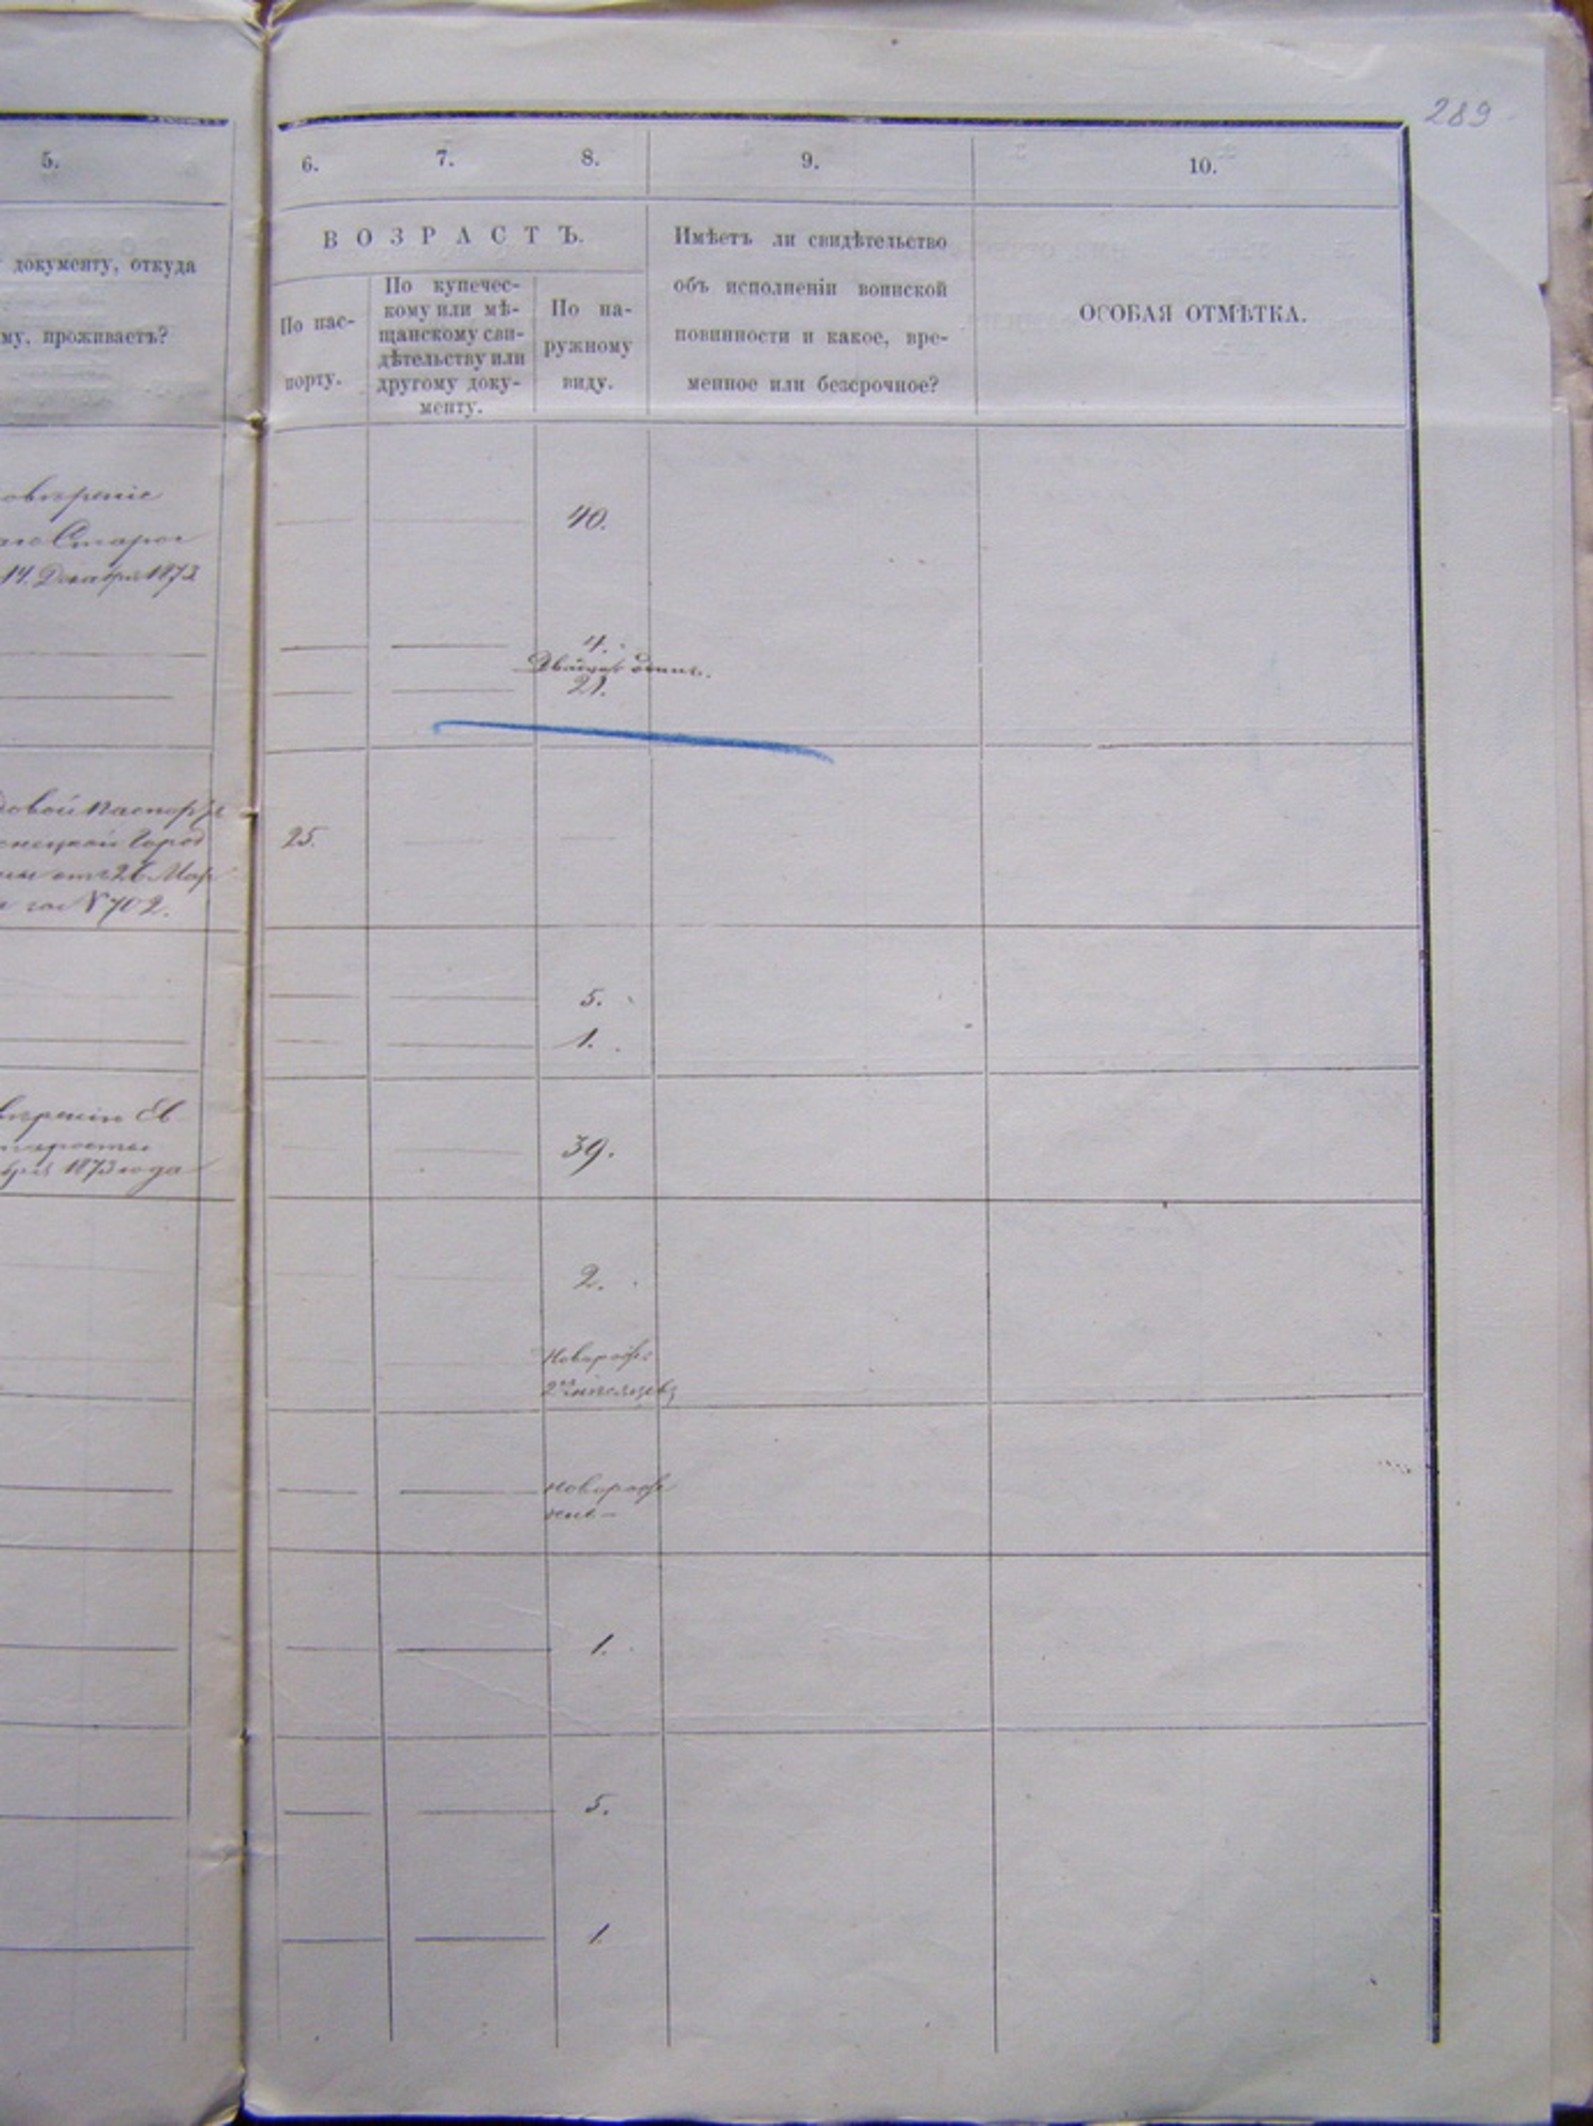 289
5.
6.
7.
8.
9.
10.
документу, откуда
му, проживаетъ?
ВОЗРАСТЪ.
По пас-
порту.
По купечес-
кому или мѣ-
щанскому сви-
дѣтельству или
другому доку-
менту.
По на-
ружному
виду.
Имѣетъ ли свидѣтельство
объ исполненіи воинской
повинности и какое, вре-
менное или безсрочное?
ОСОБАЯ ОТМѢТКА.
овѣреніе
Старос
14. Декабря 1873
40.
4.
Двадцать одинъ.
21.
довой паспортъ
Город
отъ 26 Мар
за № 702.
25.
5.
1.
вѣренію Ев
старосты
бря 1873 года
39.
2.
Новорож.
2хъ мѣсяцевъ
новорож
ден –
1.
5.
1.